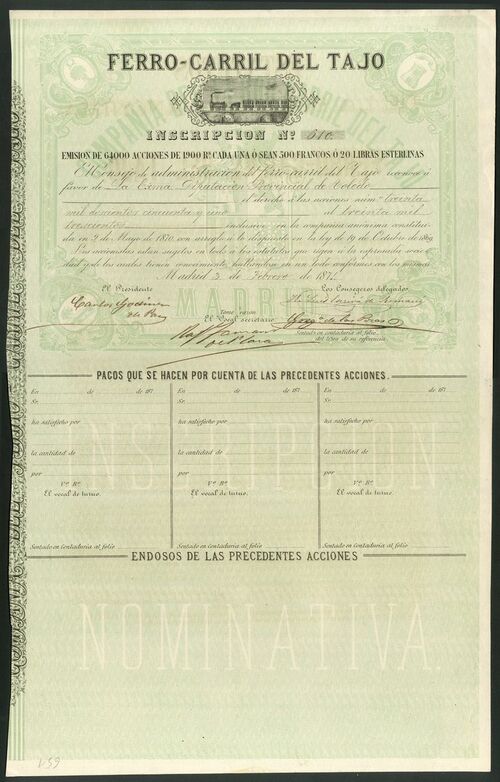 FERRO-CARRIL DEL TAJO
INSCRIPCION Nº 510
EMISION DE 64000 ACCIONES DE 1900 Rs CADA UNA Ó SEAN 500 FRANCOS Ó 20 LIBRAS ESTERLINAS
El Consejo de administracion del ferro-carril del Tajo reconoce a
favor de La Exma. Diputacion Provincial de Toledo
el derecho a las acciones num.s treinta
mil doscientos cincuenta y una al treinta mil
trescientos inclusive en la compañia anonima constitui-
da en 2 de Mayo de 1870, con arreglo a lo dispuesto en la ley de 19 de Octubre de 1869
Los accionistas estan sugetos en todo a los estatutos que rigen a la expresada socie-
dad y de los cuales tienen conocimiento, habiendose en un todo conformes con los mismos
Madrid 3 de Febrero de 187
El Presidente
Los Consegeros delegados.
Tomé razon
El Vocal secretario
Sentado en contaduria al folio
del libro de su referencia
MADRID
PAGOS QUE SE HACEN POR CUENTA DE LAS PRECEDENTES ACCIONES.
En de de 187 En de de 187 En de de 187
Sr. Sr. Sr.
ha satisfecho por ha satisfecho por ha satisfecho por
la cantidad de la cantidad de la cantidad de
por por por
Vº Bº Vº Bº Vº Bº
El vocal de turno. El vocal de turno. El vocal de turno.
INSCRIPCION
Sentado en Contaduria al folio Sentado en Contaduria al folio Sentado en Contaduria al folio
ENDOSOS DE LAS PRECEDENTES ACCIONES
NOMINATIVA.